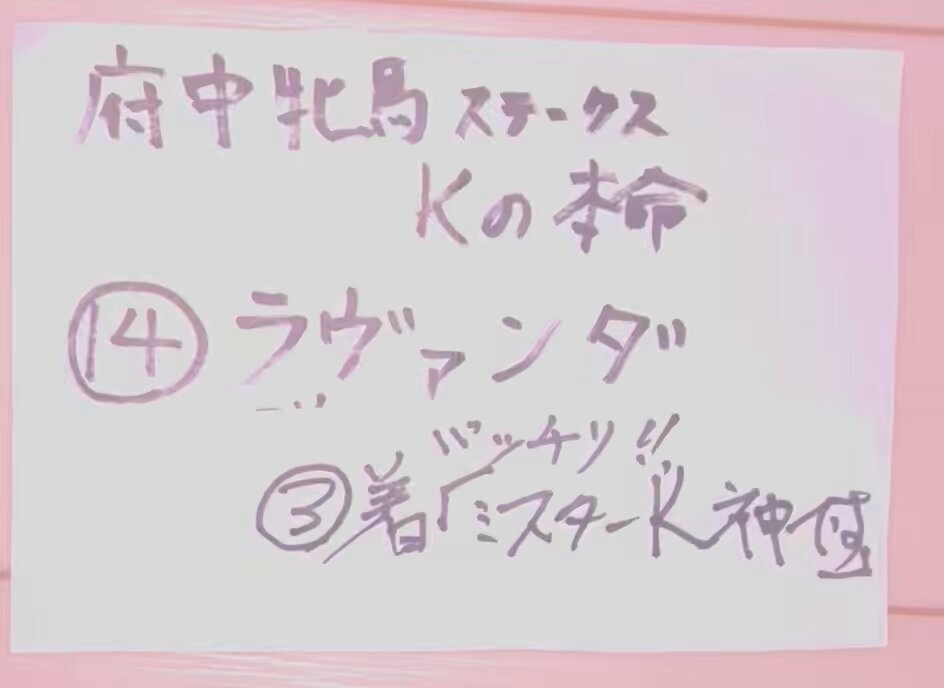 府中牝馬ステークス
Kの本命
⑭ラヴァンダ
バッチリ!!
③着「ミスターK神